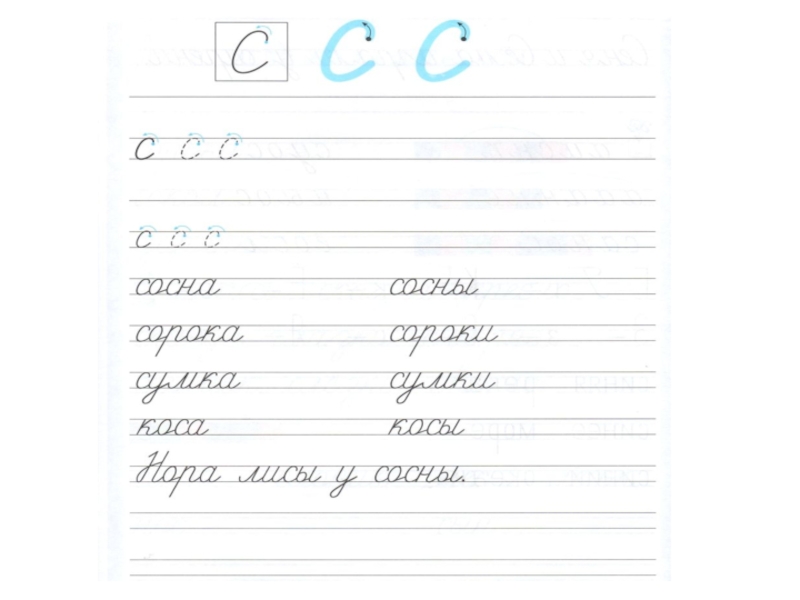 С С С
с с с
с с с
сосна сосны
сорока сороки
сумка сумки
коса косы
Нора лисы у сосны.